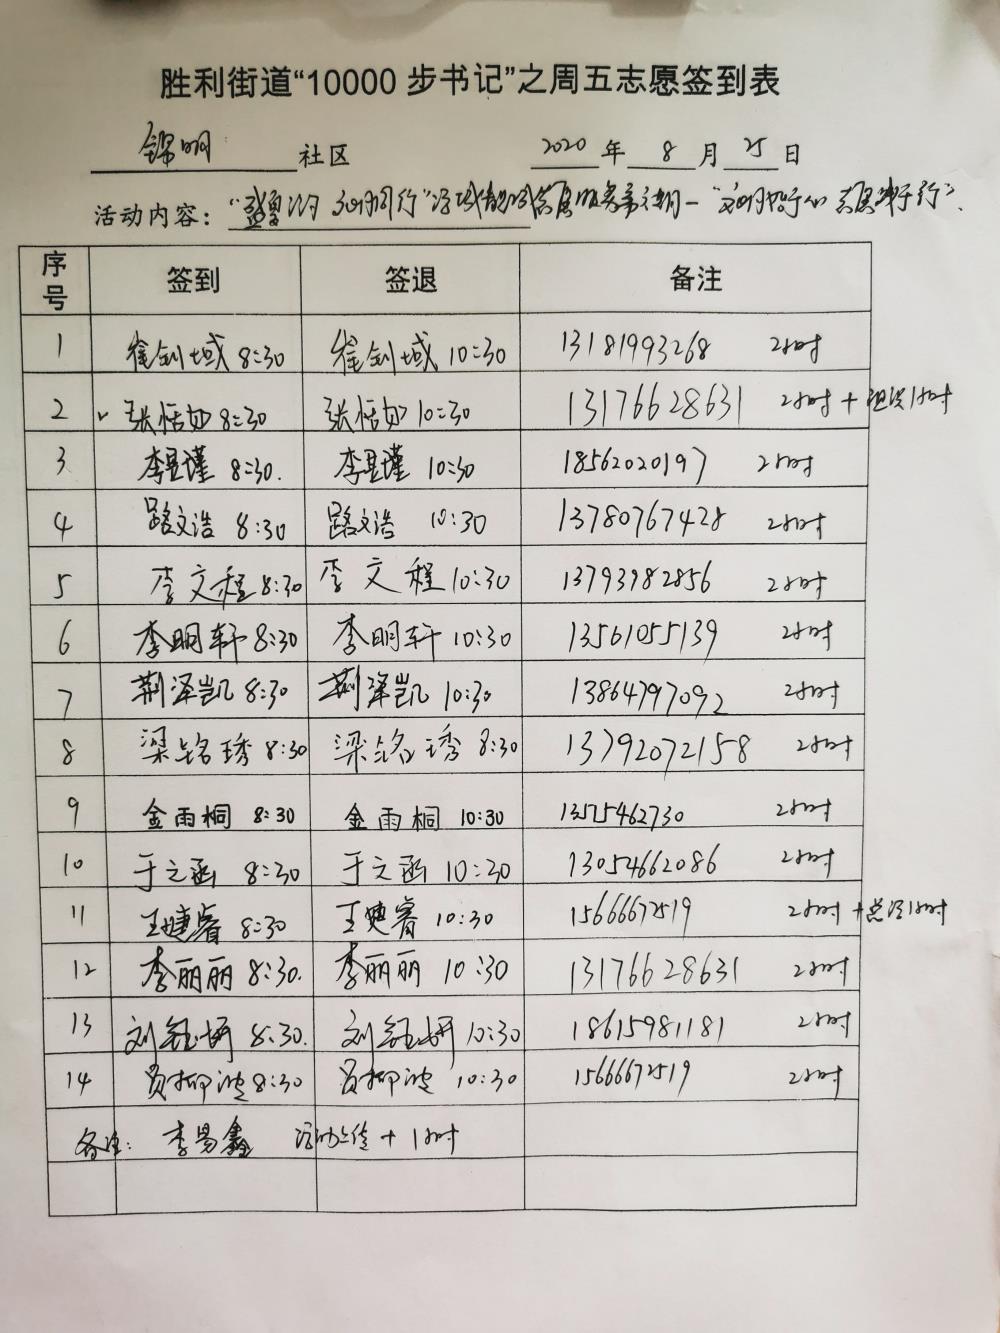 胜利街道“10000 步书记”之周五志愿签到表
锦明 社区 2020 年 8 月 25 日
活动内容：
序号 签到 签退 备注
1 崔剑域 8:30 崔剑域 10:30 13181993268 2小时
2 张恬如 8:30 张恬如 10:30 13176628631 2小时 + 1小时
3 李昱瑾 8:30. 李昱瑾 10:30 18562020197 2小时
4 路文浩 8:30 路文浩 10:30 13780767428 2小时
5 李文程 8:30 李文程 10:30 13793982856 2小时
6 李明轩 8:30 李明轩 10:30 13561055139 2小时
7 荆泽凯 8:30 荆泽凯 10:30 13864797092 2小时
8 梁铭琇 8:30 梁铭琇 8:30 13792072158 2小时
9 金雨桐 8:30 金雨桐 10:30 13575462730 2小时
10 于之函 8:30 于之函 10:30 13054662086 2小时
11 王婕睿 8:30 王婕睿 10:30 15666672519 2小时 + 1小时
12 李丽丽 8:30. 李丽丽 10:30 13176628631 2小时
13 刘钰妍 8:30. 刘钰妍 10:30 18615981181 2小时
14 8:30 10:30 15666672519 2小时
备注: 李易鑫 活动上传 + 1小时